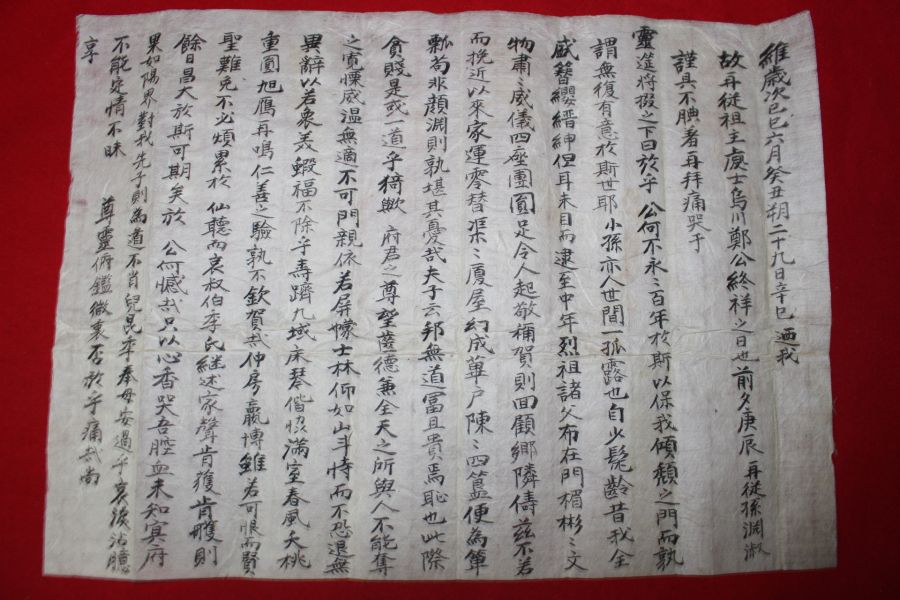 維歲次己巳六月癸丑朔二十九日辛巳 迺我
故再從祖主處士烏川鄭公終祥之日也前夕庚辰 再從孫淵淑
謹具不腆著再拜痛哭于
靈筵將掇之下曰於乎 公何不永〻百年於斯以保我傾頹之門而孰
謂無復有意於斯世耶 小孫亦人世間一孤露也自少髧齡昔我全
盛簪纓縉紳但耳未目而逮至中年烈祖諸父布在門楣彬〻文
物肅〻威儀四座團圓足令人起敬補賀則回顧鄉隣儔玆不若
而挽近以來家運零替渠〻廈屋幻成蓽户陳〻四簋便為簞
瓢苟非顏淵則孰堪其憂哉夫子云邦無道富且貴焉恥也此際
貧賤是或一道乎猗歟 府君之尊望薈德兼全天之所與人不能奪
之寬慄威温無適不可門親依若屏幪士林仰如山斗恃而不恐退無
異辭以若衆美蝦福不除乎壽躋九域床琴偕恢滿室春風夭桃
重圓旭鴈再鳴仁善之驗孰不欽賀哉仲房嬴博雖若可恨而賢
聖難免不必煩累於 仙聽而哀叔伯季氏繼述家聲肯穫肯雘則
餘日昌大於斯可期矣於 公何憾哉只以心香哭吾腔血未知冥府
果如陽界對我先子則為道不肖兒昆季奉母安過乎哀後沾臆
不能定情不昧 尊靈俯鑑微衷否於乎痛哉尚
享